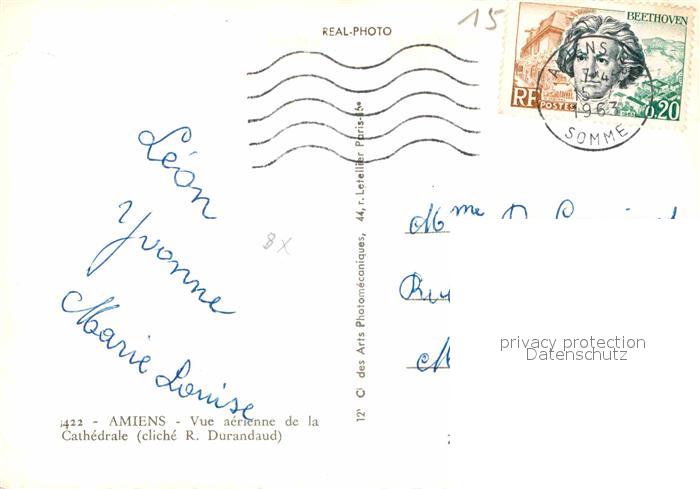 15
REAL-PHOTO
BEETHOVEN
RF
POSTES
0,20
1963
SOMME
Léon
Yvonne
Marie Louise
8x
12e Cl des Arts Photomécaniques, 44, r. Letellier Paris-15e
Mme D
privacy protection
Datenschutz
1422 - AMIENS - Vue aérienne de la
Cathédrale (cliché R. Durandaud)